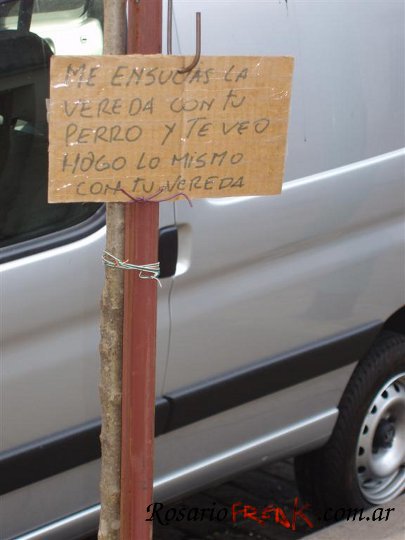 ME ENSUCIAS LA
VEREDA CON TU
PERRO Y TE VEO
HAGO LO MISMO
CON TU VEREDA
RosarioFRANK.com.ar